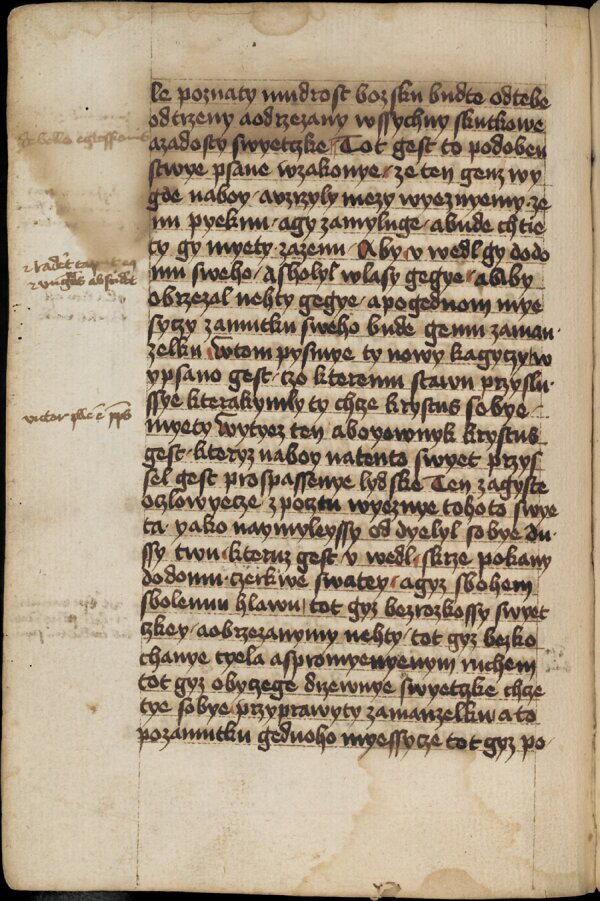 le poznaty mudrost bozsku budte odtebe
odtrzeny aodrzezany wssychny skutkowe
azadosty swyetczke Tot gest to podoben
stwye psane wzakonye ze ten genz wy
gde naboy auzrzyly mezy wyeznyemy ze
nu pyeknu agy zamyluge abude chtie
ty gy myety zazenu Aby v wedl gy dodo
mu sweho Asholyl wlasy gegye ababy
obrzezal nehty gegye apogednom mye
syczy zamutku sweho bude gemu zaman
zelku Wtom pysmye ty nowy kagyczy w
ypsano gest czo kteremu stawu przyslu
ssye kterakymly ty chcze krystus sobye
myety Wytyez ten aboyownyk krystus
gest kteryz naboy natento swyet przys
sel gest prospassenye lydske Ten zagyste
oczlowyecze zpocztu wyeznye tohoto swye
ta yako naymyleyssy od dyelyl sobye du
ssy twu kteruz gest v wedl skrze pokany
dodomu czerkwe swatey agyz sbohem
sbolemu hlawu tot gyz bezrozkossy swyet
czkey aobrzezanymy nehty tot gyz bezko
chanye tyela aspromyenyenym ruchem
tot gyz obyczege drzewnye swyetczke chcze
tye sobye przyprawyty zamanzelku a to
pozamutku gednoho myessycze tot gyz po